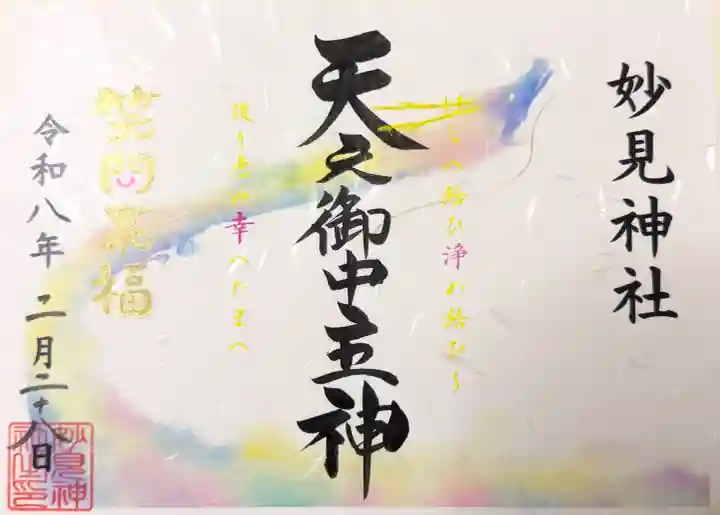 妙見神社
はらへ給ひ浄め給ひ〜
天之御中主神
限り無め幸へたまへ
笑門来福
令和八年二月二十八日
妙見神社之印